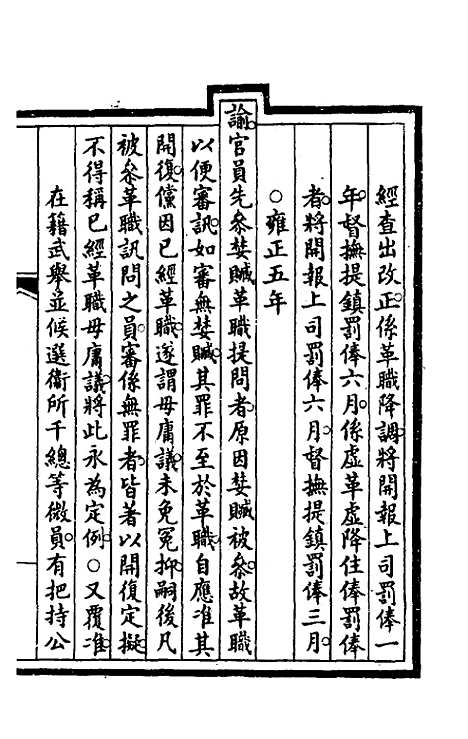 經查出改正係革職降調將開報上司罰俸一
年督撫提鎮罰俸六月係虛革虛降住俸罰俸
者將開報上司罰俸六月督撫提鎮罰俸三月
○雍正五年
諭官員先叅婪贓革職提問者原因婪贓被叅故革職
以便審訊如審無婪贓其罪不至於革職自應准其
開復儻因已經革職遂謂毋庸議未免冤抑嗣後凡
被叅革職訊問之員審係無罪者皆著以開復定擬
不得稱已經革職毋庸議將此永為定例○又覆准
在籍武舉並候選衞所千總等微員有把持公